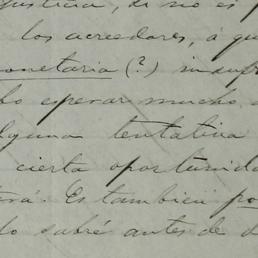 justicia, si no es p
los acreedores, á qu
onetaria (?) insuf
bo esperar mucho
lguna tentativa
cierta oportunida
rá. Es tambien po
lo sabré antes de d